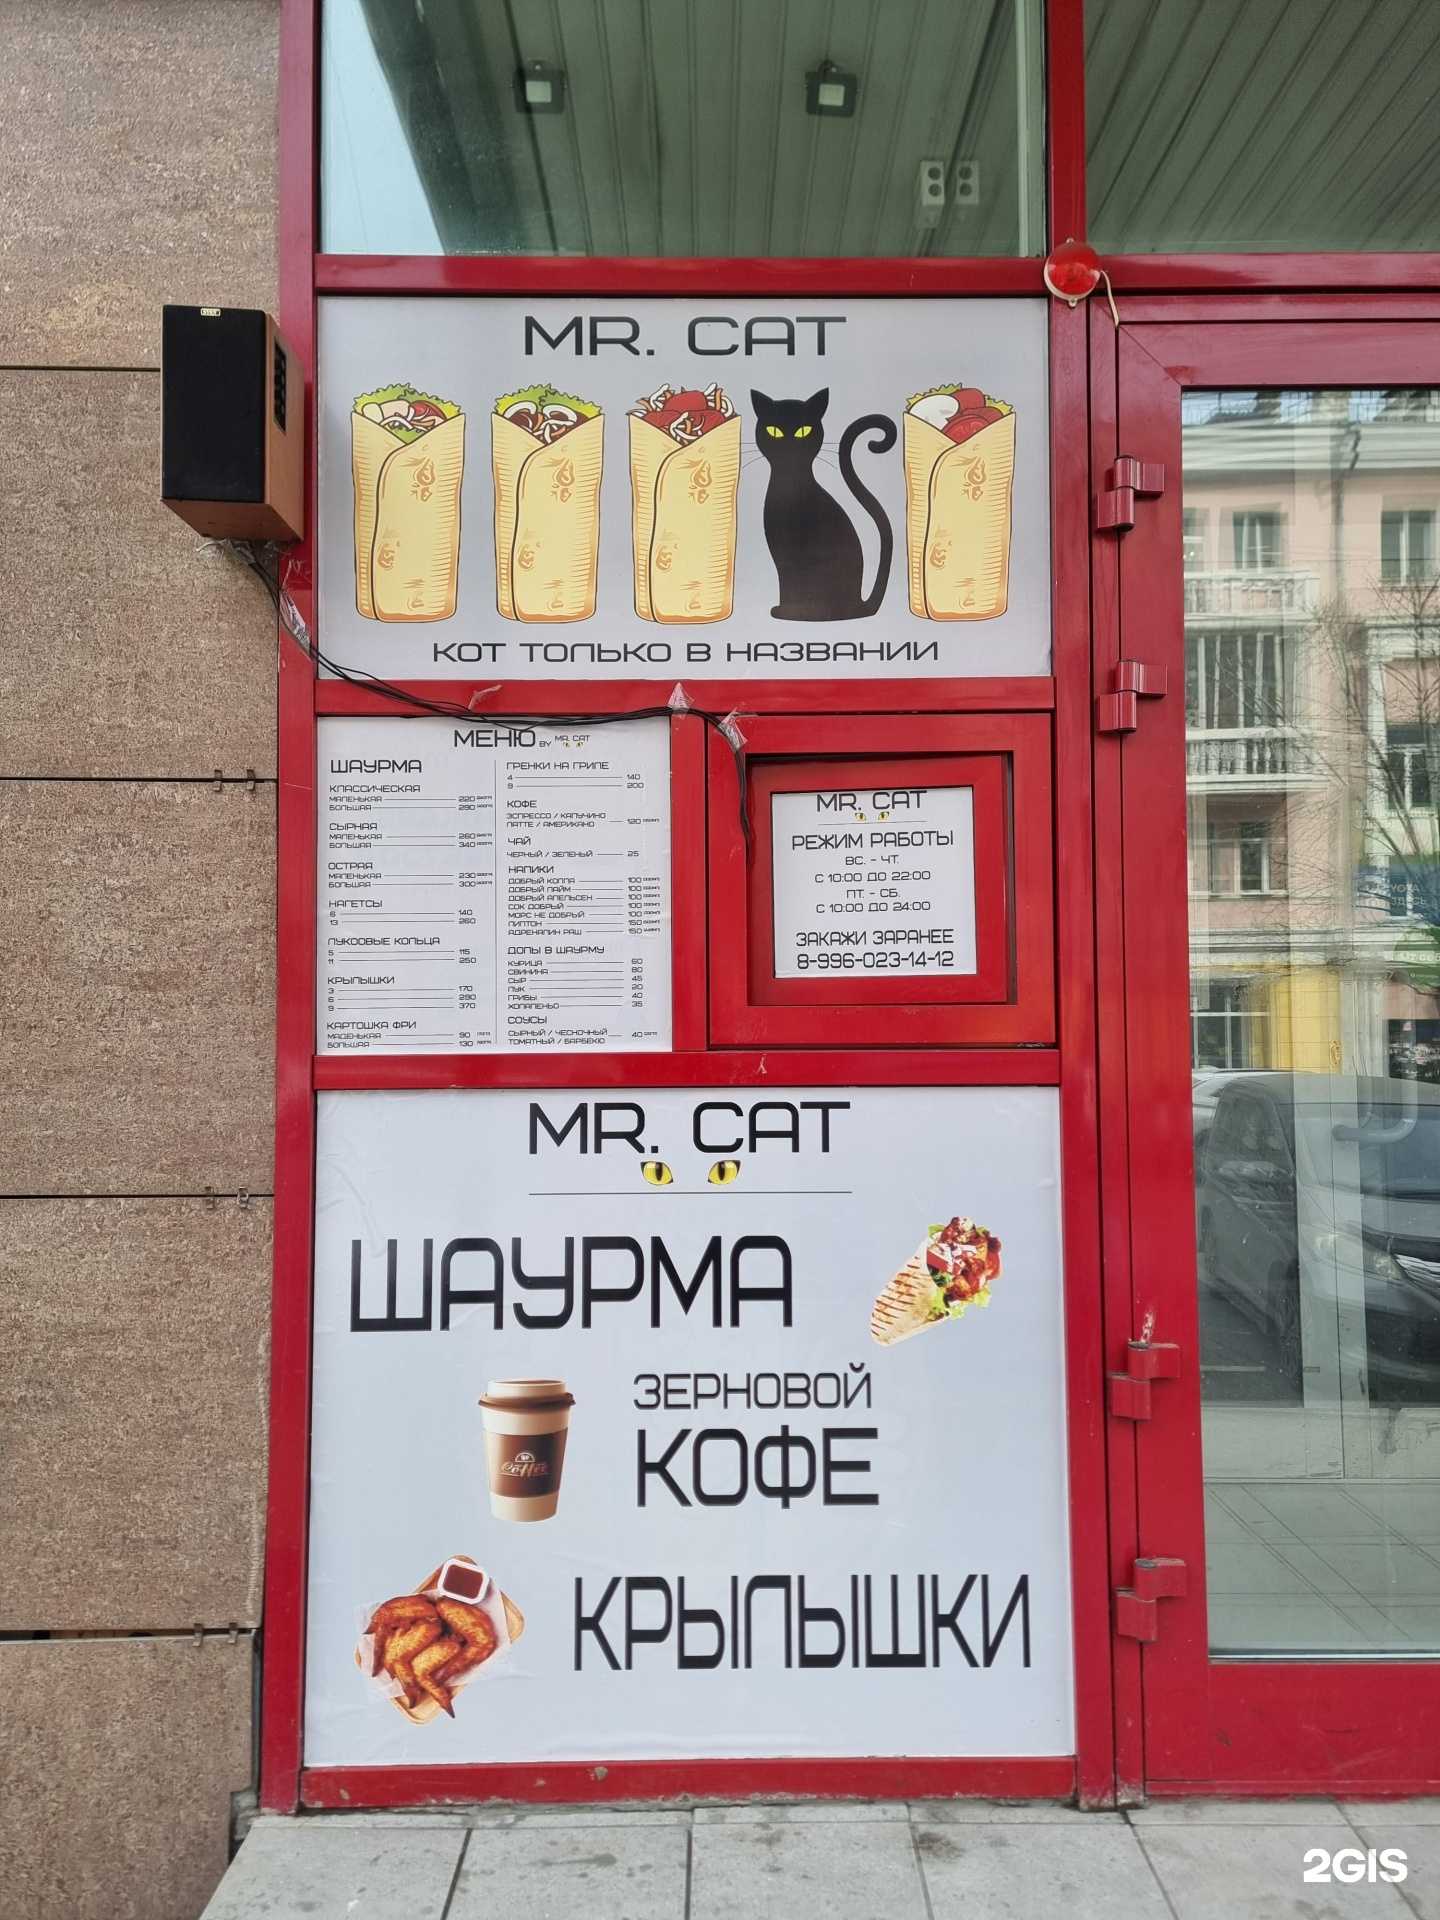 MR. CAT
КОТ ТОЛЬКО В НАЗВАНИИ
МЕНЮ BY MR. CAT
ШАУРМА
КЛАССИЧЕСКАЯ
МАЛЕНЬКАЯ 220
БОЛЬШАЯ 290
СЫРНАЯ
МАЛЕНЬКАЯ 260
БОЛЬШАЯ 340
ОСТРАЯ
МАЛЕНЬКАЯ 230
БОЛЬШАЯ 300
НАГЕТСЫ
6 140
13 260
ЛУКОВЫЕ КОЛЬЦА
5 115
11 250
КРЫЛЫШКИ
3 170
6 290
9 370
КАРТОШКА ФРИ
МАЛЕНЬКАЯ 90
БОЛЬШАЯ 130
ГРЕНКИ НА ГРИЛЕ
4 140
9 200
КОФЕ
ЭСПРЕССО / КАПУЧИНО
ЛАТТЕ / АМЕРИКАНО 120
ЧАЙ
ЧЕРНЫЙ / ЗЕЛЕНЫЙ 25
НАПИКИ
ДОБРЫЙ КОЛЛА 100
ДОБРЫЙ ЛАЙМ 100
ДОБРЫЙ АПЕЛЬСЕН 100
СОК ДОБРЫЙ 100
МОРС НЕ ДОБРЫЙ 100
ЛИПТОН 150
АДРЕНАЛИН РАШ 150
ДОПЫ В ШАУРМУ
КУРИЦА 60
СВИНИНА 80
СЫР 45
ЛУК 20
ГРИБЫ 40
ХОЛАПЕНЬО 35
СОУСЫ
СЫРНЫЙ / ЧЕСНОЧНЫЙ 40
ТОМАТНЫЙ / БАРБЕКЮ
MR. CAT
РЕЖИМ РАБОТЫ
ВС. - ЧТ.
С 10:00 ДО 22:00
ПТ. - СБ.
С 10:00 ДО 24:00
ЗАКАЖИ ЗАРАНЕЕ
8-996-023-14-12
MR. CAT
ШАУРМА
ЗЕРНОВОЙ
КОФЕ
Coffee
КРЫЛЫШКИ
2GIS